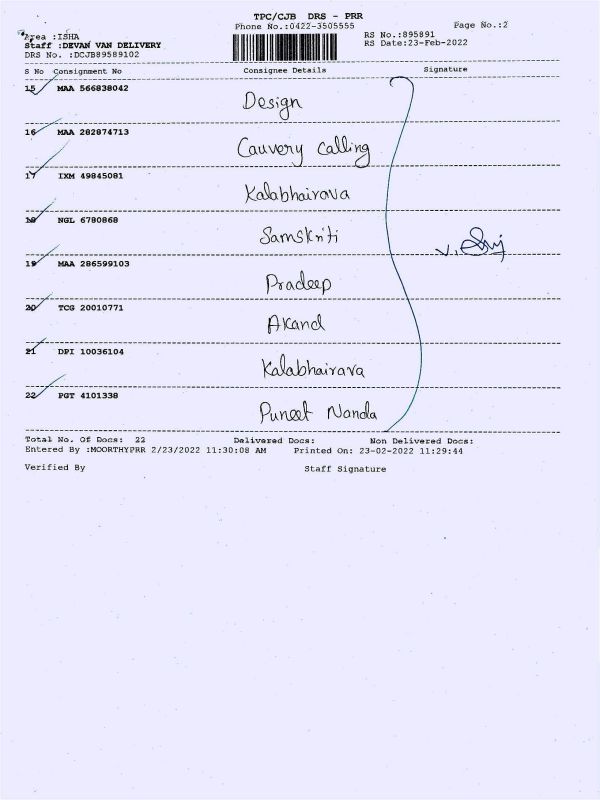 TPC/CJB DRS - PRR
Phone No.:0422-3505555 Page No.:2
Area :ISHA RS No.:895891
Staff :DEVAN VAN DELIVERY RS Date:23-Feb-2022
DRS No. :DCJB89589102
S No Consignment No Consignee Details Signature
15 MAA 566838042
Design
16 MAA 282874713
Cauvery calling
17 IXM 49845081
Kalabhairava
18 NGL 6780868
Samskriti
19 MAA 286599103
Pradeep
20 TCG 20010771
Akand
21 DPI 10036104
Kalabhairava
22 PGT 4101338
Puneet Nanda
Total No. Of Docs: 22 Delivered Docs: Non Delivered Docs:
Entered By :MOORTHYPRR 2/23/2022 11:30:08 AM Printed On: 23-02-2022 11:29:44
Verified By Staff Signature